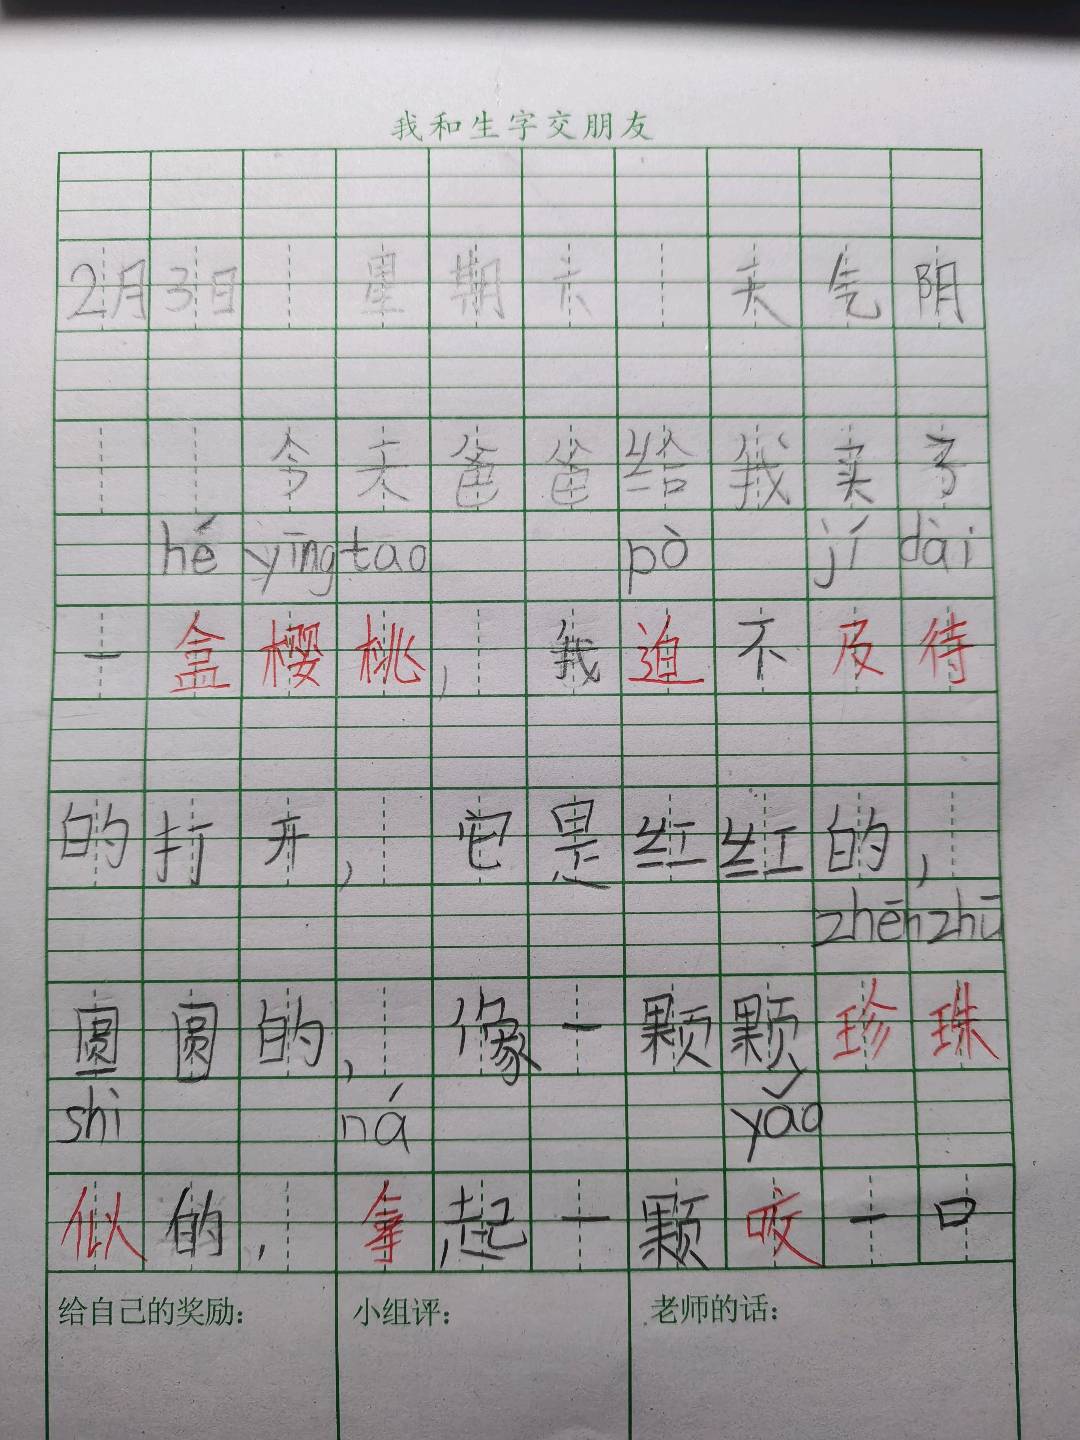 我和生字交朋友
2月3日 星期六 天气阴
今天爸爸给我卖了
hé yīng tao pò jí dài
一盒樱桃，我迫不及待
的打开，它是红红的，
zhēn zhū
圆圆的，像一颗颗珍珠
shi ná yǎo
似的，拿起一颗咬一口
给自己的奖励： 小组评： 老师的话：